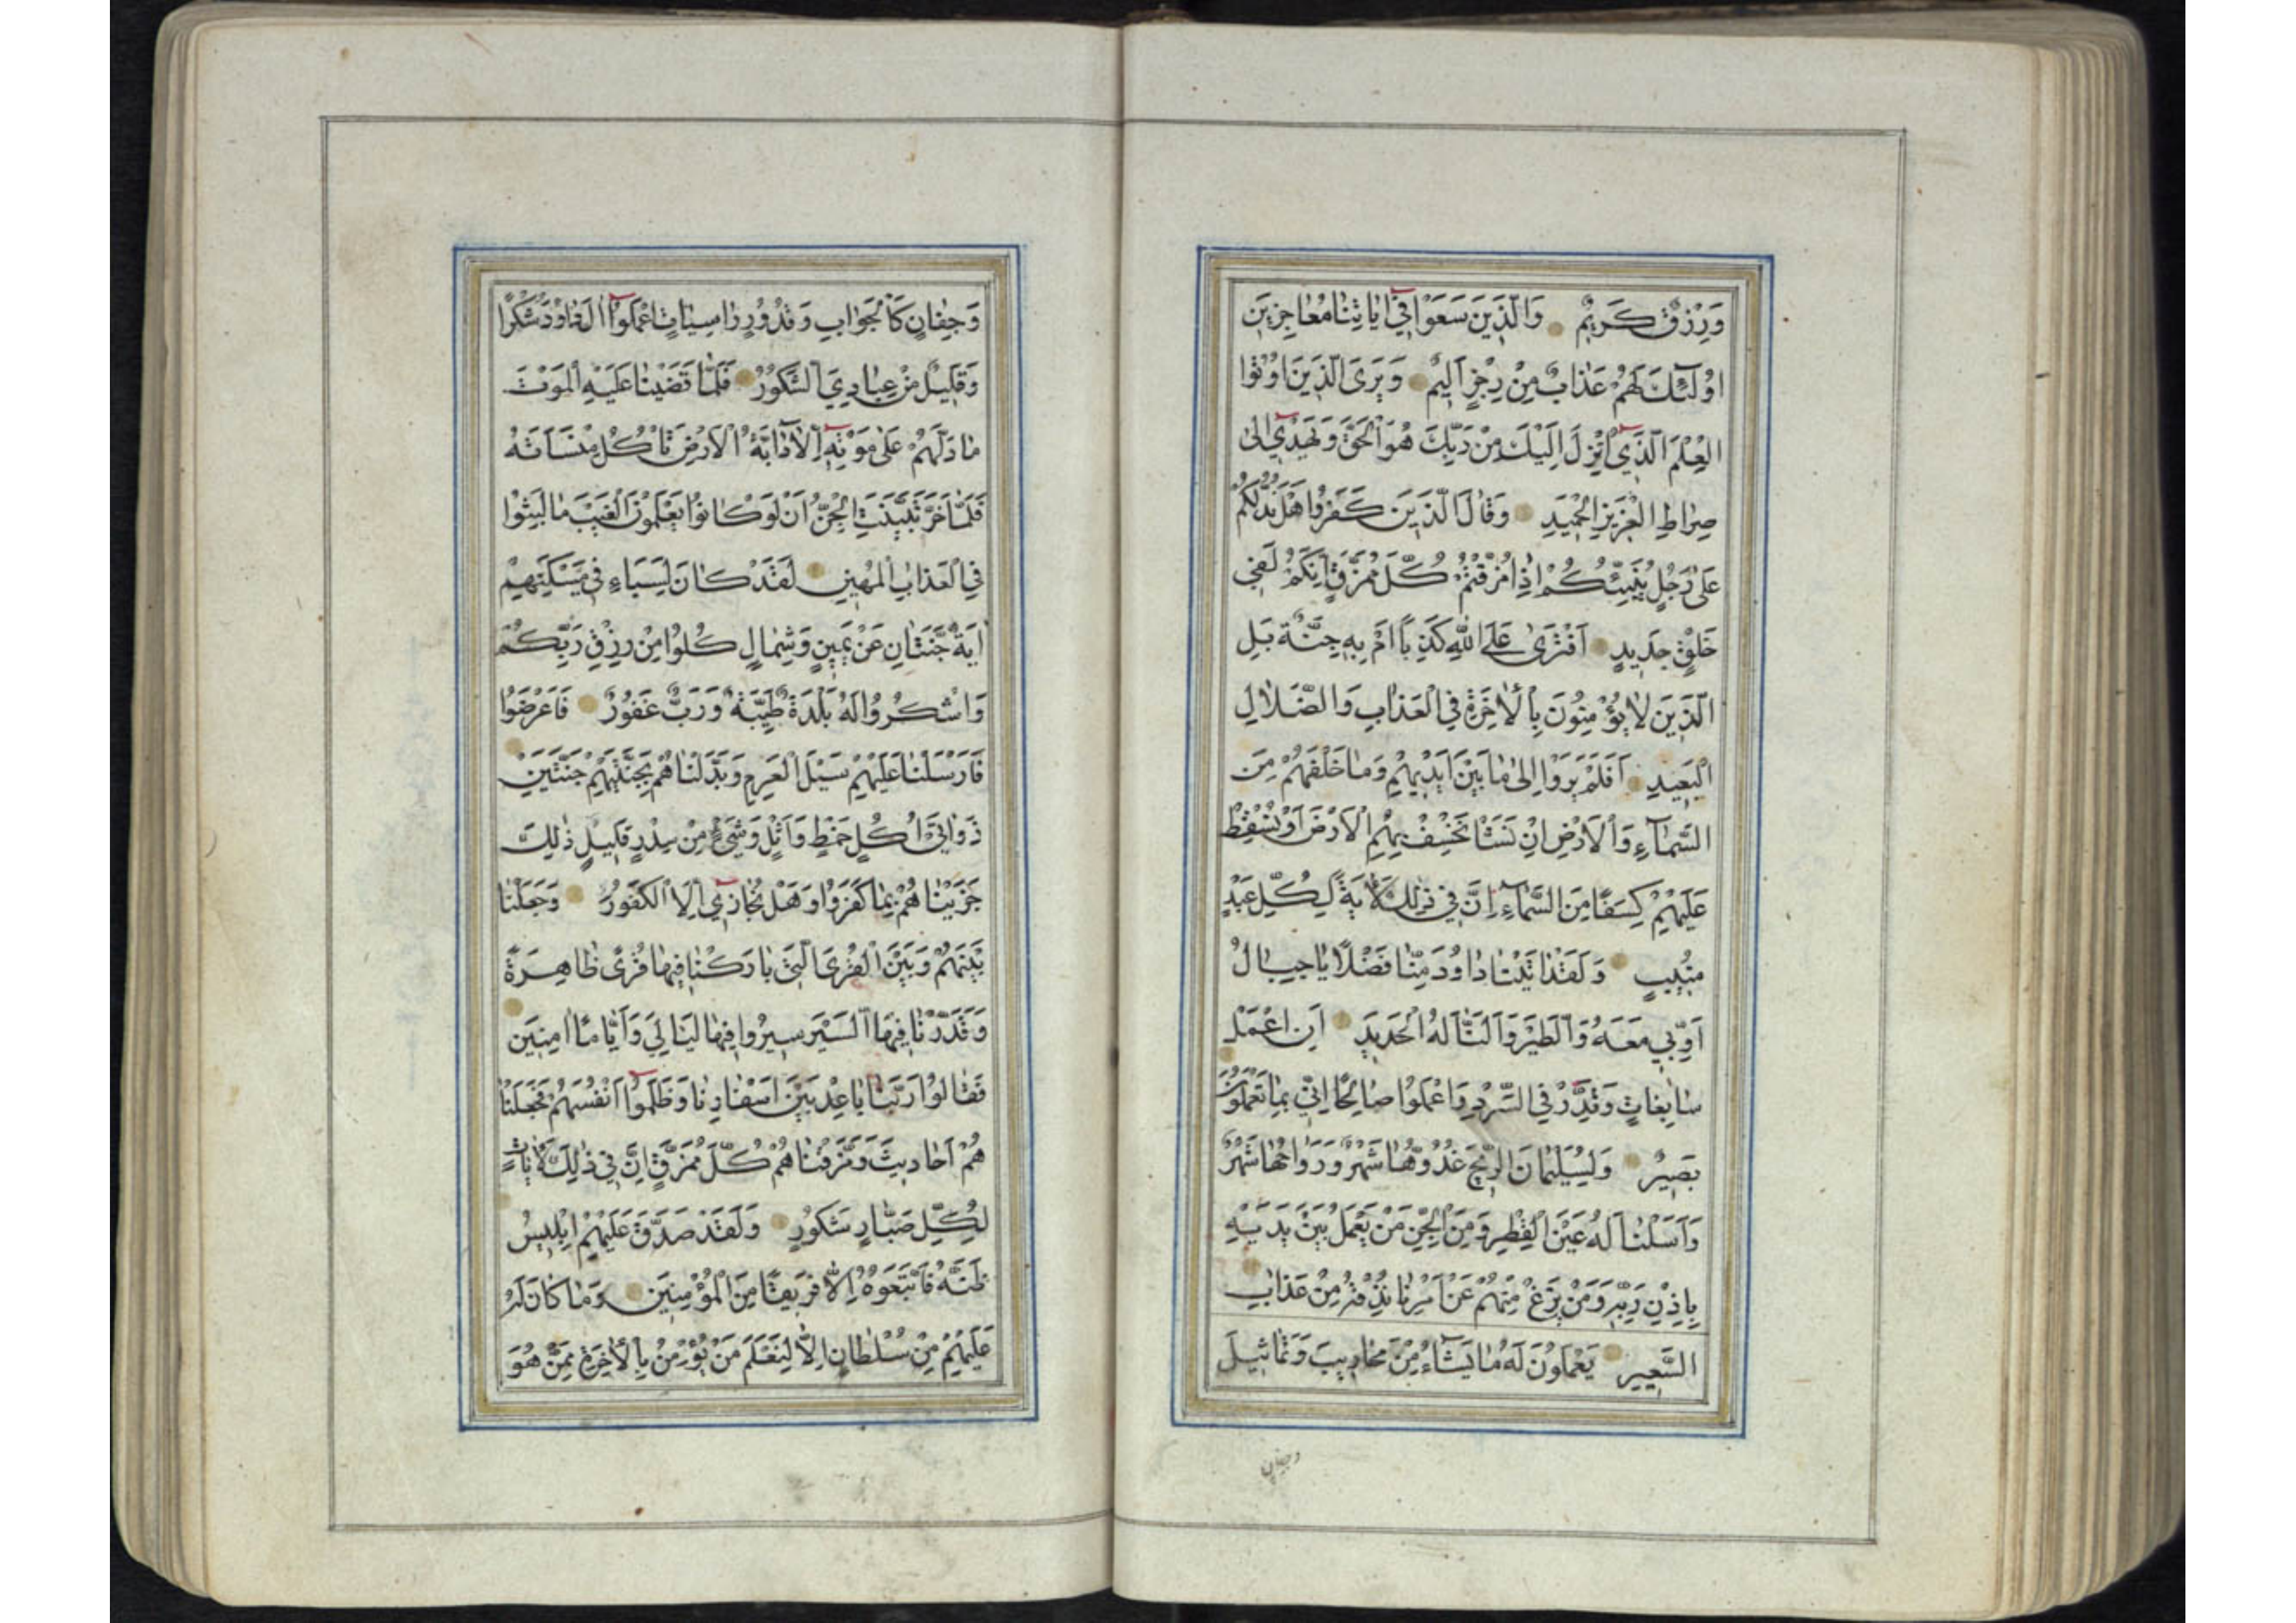 وَرِزْقٌ كَرِيمٌ وَالَّذِينَ سَعَوْا فِي آيَاتِنَا مُعَاجِزِينَ
اُولٰئِكَ لَهُمْ عَذَابٌ مِنْ رِجْزٍ اَلِيمٌ وَيَرَى الَّذِينَ اُوتُوا
الْعِلْمَ الَّذِي اُنْزِلَ اِلَيْكَ مِنْ رَبِّكَ هُوَ الْحَقَّ وَيَهْدِي اِلٰى
صِرَاطِ الْعَزِيزِ الْحَمِيدِ وَقَالَ الَّذِينَ كَفَرُوا هَلْ نَدُلُّكُمْ
عَلٰى رَجُلٍ يُنَبِّئُكُمْ اِذَا مُزِّقْتُمْ كُلَّ مُمَزَّقٍ اِنَّكُمْ لَفِي
خَلْقٍ جَدِيدٍ اَفْتَرٰى عَلَى اللّٰهِ كَذِبًا اَمْ بِهِ جِنَّةٌ بَلِ
الَّذِينَ لَا يُؤْمِنُونَ بِالْاٰخِرَةِ فِي الْعَذَابِ وَالضَّلَالِ
الْبَعِيدِ اَفَلَمْ يَرَوْا اِلٰى مَا بَيْنَ اَيْدِيهِمْ وَمَا خَلْفَهُمْ مِنَ
السَّمَآءِ وَالْاَرْضِ اِنْ نَشَأْ نَخْسِفْ بِهِمِ الْاَرْضَ اَوْ نُسْقِطْ
عَلَيْهِمْ كِسَفًا مِنَ السَّمَآءِ اِنَّ فِي ذٰلِكَ لَاٰيَةً لِكُلِّ عَبْدٍ
مُنِيبٍ وَلَقَدْ اٰتَيْنَا دَاوُدَ مِنَّا فَضْلًا يَا جِبَالُ
اَوِّبِي مَعَهُ وَالطَّيْرَ وَاَلَنَّا لَهُ الْحَدِيدَ اَنِ اعْمَلْ
سَابِغَاتٍ وَقَدِّرْ فِي السَّرْدِ وَاعْمَلُوا صَالِحًا اِنِّي بِمَا تَعْمَلُونَ
بَصِيرٌ وَلِسُلَيْمَانَ الرِّيحَ غُدُوُّهَا شَهْرٌ وَرَوَاحُهَا شَهْرٌ
وَاَسَلْنَا لَهُ عَيْنَ الْقِطْرِ وَمِنَ الْجِنِّ مَنْ يَعْمَلُ بَيْنَ يَدَيْهِ
بِاِذْنِ رَبِّهِ وَمَنْ يَزِغْ مِنْهُمْ عَنْ اَمْرِنَا نُذِقْهُ مِنْ عَذَابِ
السَّعِيرِ يَعْمَلُونَ لَهُ مَا يَشَاءُ مِنْ مَحَارِيبَ وَتَمَاثِيلَ
وجفان
وَجِفَانٍ كَالْجَوَابِ وَقُدُورٍ رَاسِيَاتٍ اعْمَلُوا اٰلَ دَاوُدَ شُكْرًا
وَقَلِيلٌ مِنْ عِبَادِيَ الشَّكُورُ فَلَمَّا قَضَيْنَا عَلَيْهِ الْمَوْتَ
مَا دَلَّهُمْ عَلٰى مَوْتِهِ اِلَّا دَابَّةُ الْاَرْضِ تَأْكُلُ مِنْسَاَتَهُ
فَلَمَّا خَرَّ تَبَيَّنَتِ الْجِنُّ اَنْ لَوْ كَانُوا يَعْلَمُونَ الْغَيْبَ مَا لَبِثُوا
فِي الْعَذَابِ الْمُهِينِ لَقَدْ كَانَ لِسَبَاءٍ فِي مَسْكَنِهِمْ
اٰيَةٌ جَنَّتَانِ عَنْ يَمِينٍ وَشِمَالٍ كُلُوا مِنْ رِزْقِ رَبِّكُمْ
وَاشْكُرُوا لَهُ بَلْدَةٌ طَيِّبَةٌ وَرَبٌّ غَفُورٌ فَاَعْرَضُوا
فَاَرْسَلْنَا عَلَيْهِمْ سَيْلَ الْعَرِمِ وَبَدَّلْنَاهُمْ بِجَنَّتَيْهِمْ جَنَّتَيْنِ
ذَوَاتَيْ اُكُلٍ خَمْطٍ وَاَثْلٍ وَشَيْءٍ مِنْ سِدْرٍ قَلِيلٍ ذٰلِكَ
جَزَيْنَاهُمْ بِمَا كَفَرُوا وَهَلْ نُجَازِي اِلَّا الْكَفُورَ وَجَعَلْنَا
بَيْنَهُمْ وَبَيْنَ الْقُرَى الَّتِي بَارَكْنَا فِيهَا قُرًى ظَاهِرَةً
وَقَدَّرْنَا فِيهَا السَّيْرَ سِيرُوا فِيهَا لَيَالِيَ وَاَيَّامًا اٰمِنِينَ
فَقَالُوا رَبَّنَا بَاعِدْ بَيْنَ اَسْفَارِنَا وَظَلَمُوا اَنْفُسَهُمْ فَجَعَلْنَا
هُمْ اَحَادِيثَ وَمَزَّقْنَاهُمْ كُلَّ مُمَزَّقٍ اِنَّ فِي ذٰلِكَ لَاٰيَاتٍ
لِكُلِّ صَبَّارٍ شَكُورٍ وَلَقَدْ صَدَّقَ عَلَيْهِمْ اِبْلِيسُ
ظَنَّهُ فَاتَّبَعُوهُ اِلَّا فَرِيقًا مِنَ الْمُؤْمِنِينَ وَمَا كَانَ لَهُ
عَلَيْهِمْ مِنْ سُلْطَانٍ اِلَّا لِنَعْلَمَ مَنْ يُؤْمِنُ بِالْاٰخِرَةِ مِمَّنْ هُوَ